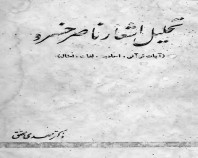 تحلیل اشعار ناصر خسرو
(آیات قرآنی، احادیث، لغات، امثال)
دکتر مهدی محقق